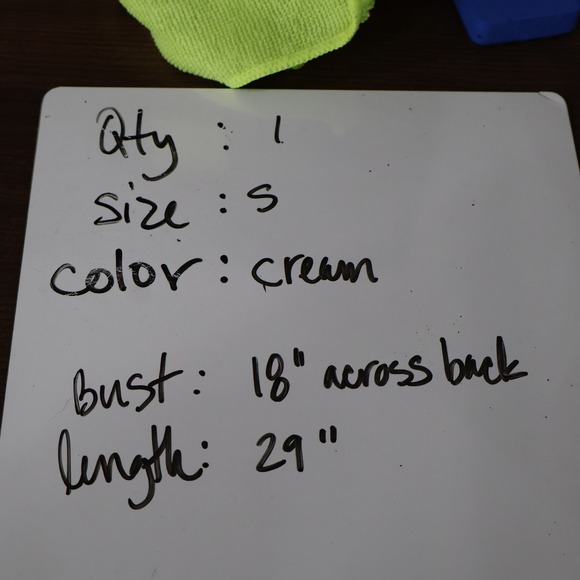 Qty : 1
size : S
color : cream
Bust : 18" across back
length : 29"